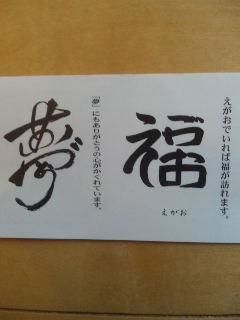 えがおでいれば福が訪れます。
福
えがお
「夢」にもありがとうの心がかくれています。
夢